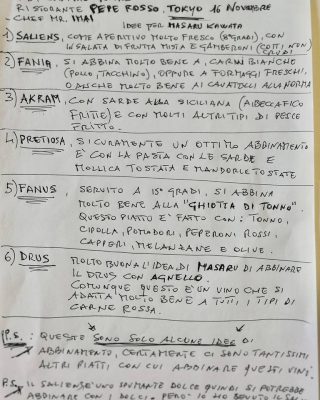 RISTORANTE PEPE ROSSO, TOKYO 16 NOVEMBRE
- CHEF MR. IMAI
IDEE PER MASARU KAWATA
1) SALIENS, COME APERITIVO MOLTO FRESCO (8°GRADI), CON
INSALATA DI FRUTTA MISTA E GAMBERONI (COTTI NON
CRUDI
2) FANIA, SI ABBINA MOLTO BENE A CARNI BIANCHE
(POLLO, TACCHINO), OPPURE A FORMAGGI FRESCHI,
O ANCHE MOLTO BENE AI CAVATELLI ALLA NORMA
3) AKRAM, CON SARDE ALLA SICILIANA (A BECCAFICO
FRITTE) E CON MOLTI ALTRI TIPI DI PESCE
FRITTO.
4) PRETIOSA, SICURAMENTE UN OTTIMO ABBINAMENTO
E' CON LA PASTA CON LE SARDE E
MOLLICA TOSTATA E MANDORLE TOSTATE
5) FANUS, SERVITO A 15° GRADI, SI ABBINA
MOLTO BENE ALLA "GHIOTTA DI TONNO".
QUESTO PIATTO E' FATTO CON: TONNO,
CIPOLLA, POMODORI, PEPERONI ROSSI,
CAPPERI, MELANZANE E OLIVE.
6) DRUS, MOLTO BUONA L'IDEA DI MASARU DI ABBINARE
IL DRUS CON AGNELLO.
COMUNQUE QUESTO E' UN VINO CHE SI
ADATTA MOLTO BENE A TUTTI I TIPI DI
CARNE ROSSA.
P.S.: QUESTE SONO SOLO ALCUNE IDEE DI
ABBINAMENTO, CERTAMENTE CI SONO TANTISSIMI
ALTRI PIATTI CON CUI ABBINARE QUESTI VINI.
P.S. IL SALIENS E' UNO SPUMANTE DOLCE QUINDI SI POTREBBE
ABBINARE CON I DOLCI, PERO' IO HO BEVUTO IL